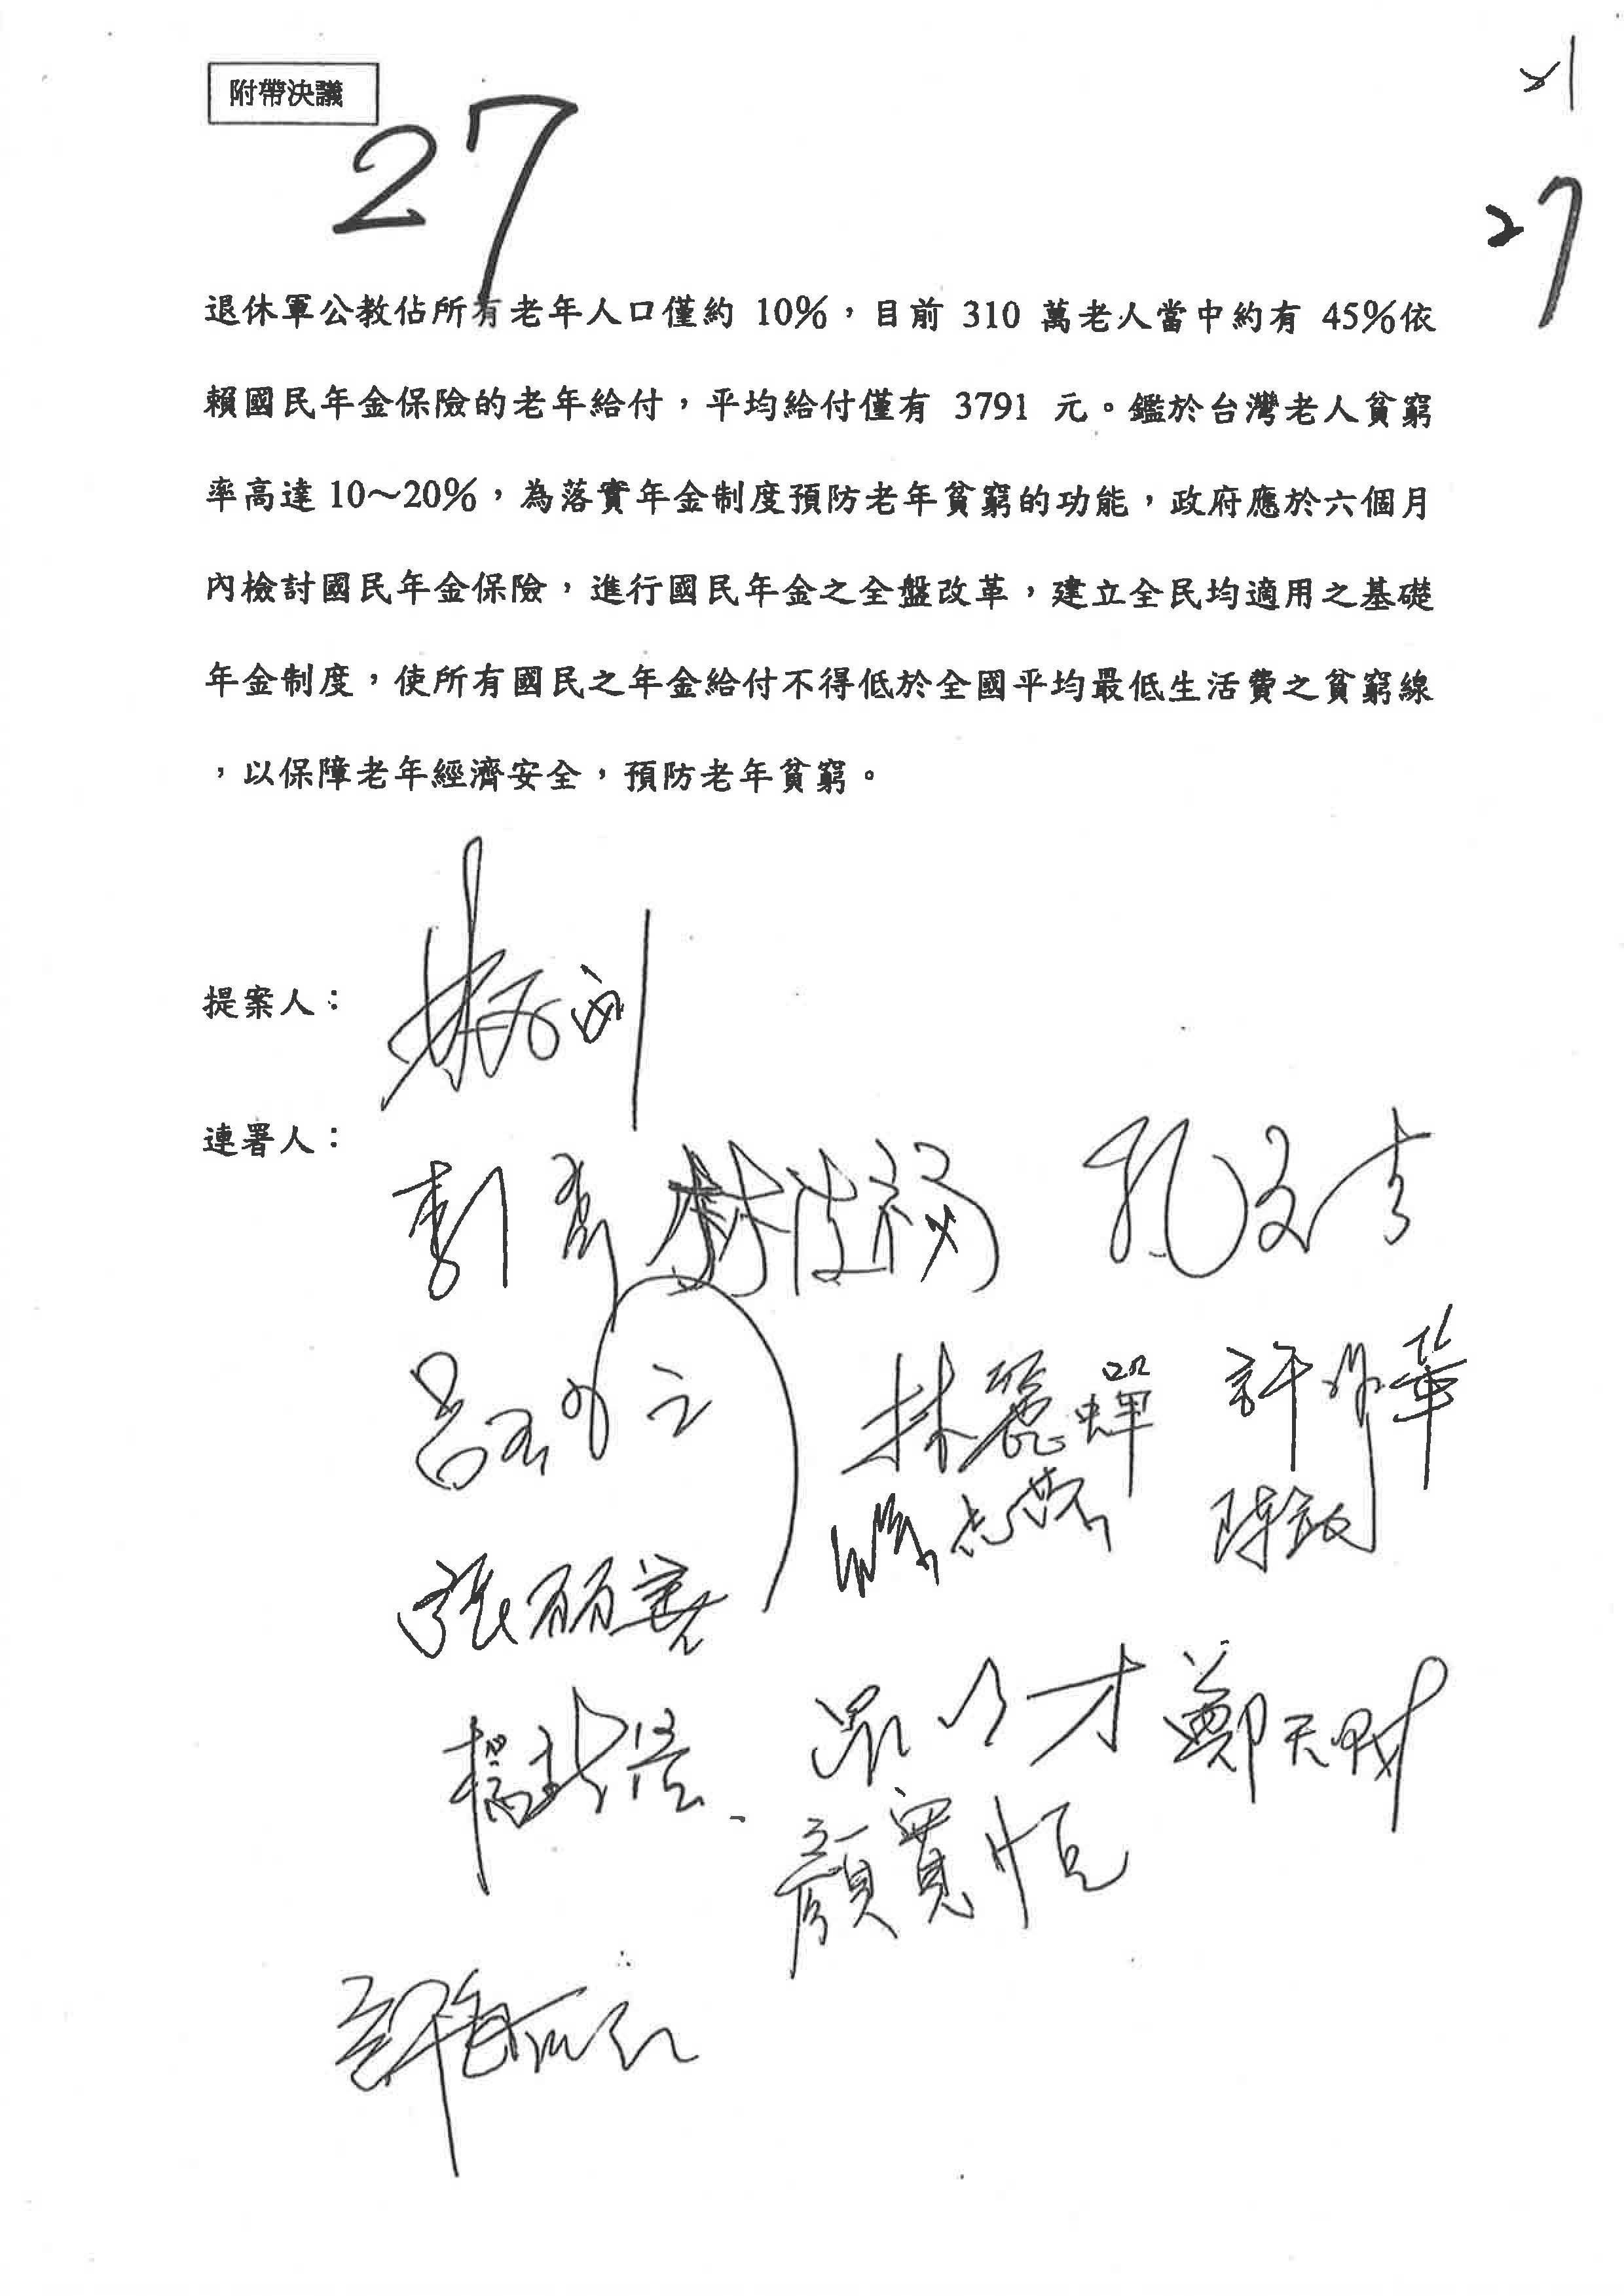 附帶決議
27
21
27
退休軍公教佔所有老年人口僅約 10%，目前 310 萬老人當中約有 45%依
賴國民年金保險的老年給付，平均給付僅有 3791 元。鑑於台灣老人貧窮
率高達 10～20%，為落實年金制度預防老年貧窮的功能，政府應於六個月
內檢討國民年金保險，進行國民年金之全盤改革，建立全民均適用之基礎
年金制度，使所有國民之年金給付不得低於全國平均最低生活費之貧窮線
，以保障老年經濟安全，預防老年貧窮。
提案人：
連署人：
孔文吉
呂玉玲
林麗蟬 許淑華
張麗善
鄭天財
顏寬恒